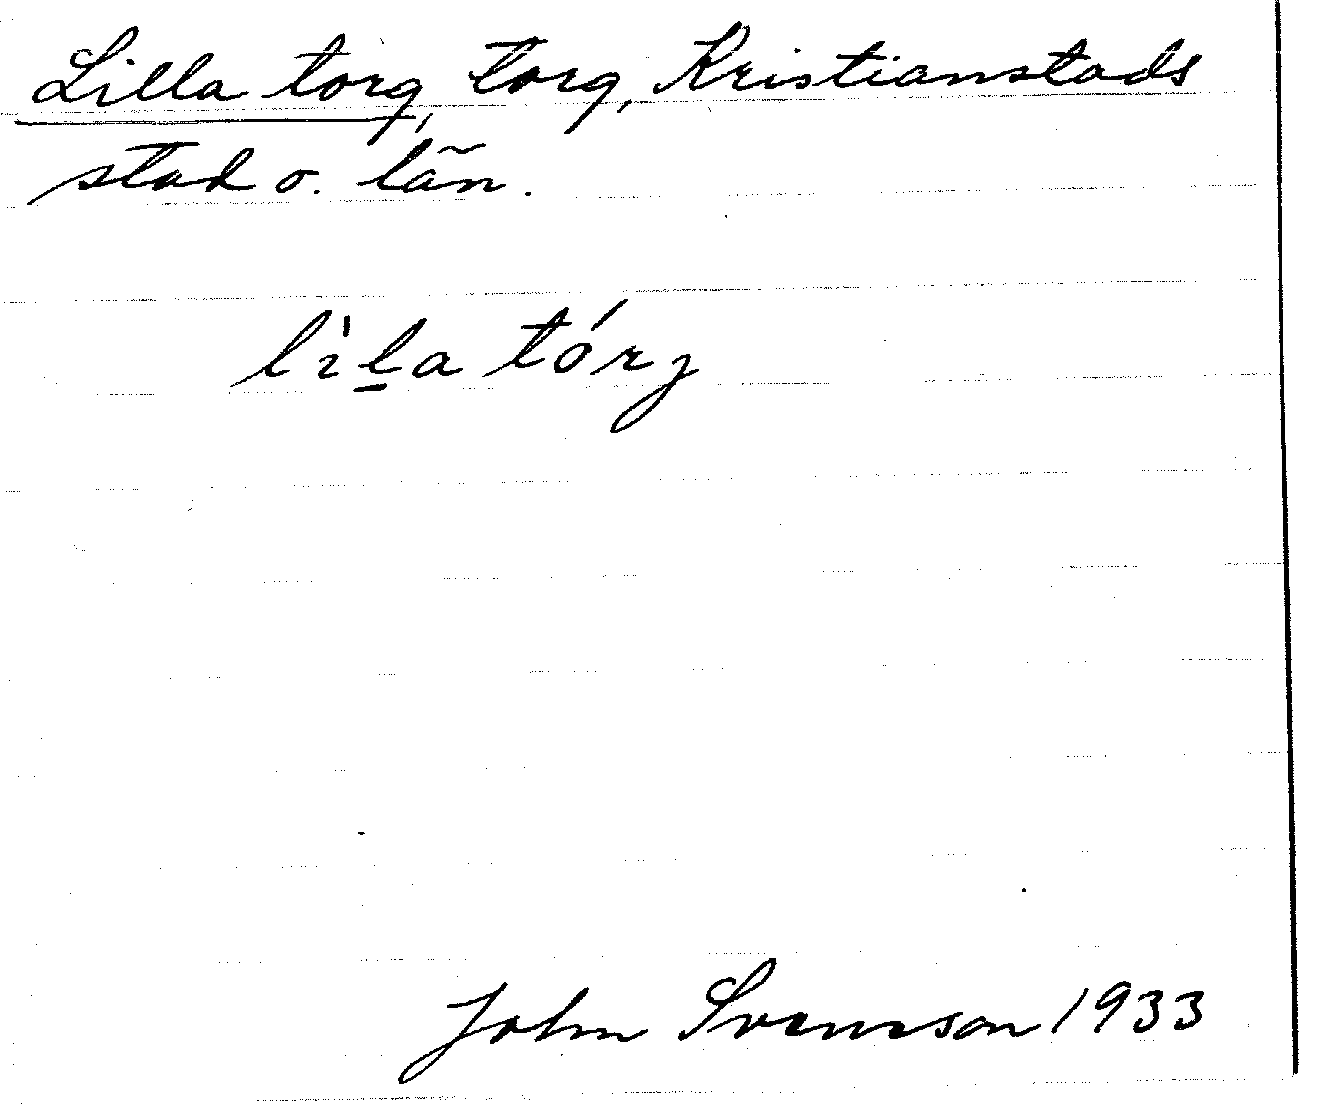 Lilla torg, torg, Kristianstads
stad o. län.
lìl̠a tórj
John Svensson 1933